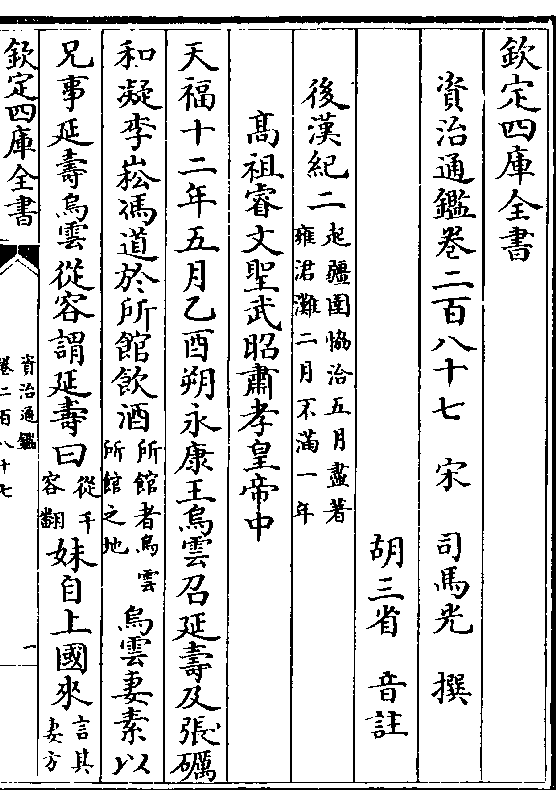 欽定四庫全書
資治通鑑卷二百八十七 宋 司馬光 撰
胡三省 音註
後漢紀二 起疆圉恊洽五月盡著雍涒灘二月不滿一年
髙祖睿文聖武昭肅孝皇帝中
天福十二年五月乙酉朔永康王烏雲召延壽及張礪
和凝李崧馮道於所館飲酒 所館者烏雲所館之地 烏雲妻素以
兄事延壽烏雲從容謂延壽曰 從千容翻 妹自上國來 言其妻方
欽定四庫全書
資治通鑑
卷二百八十七
一